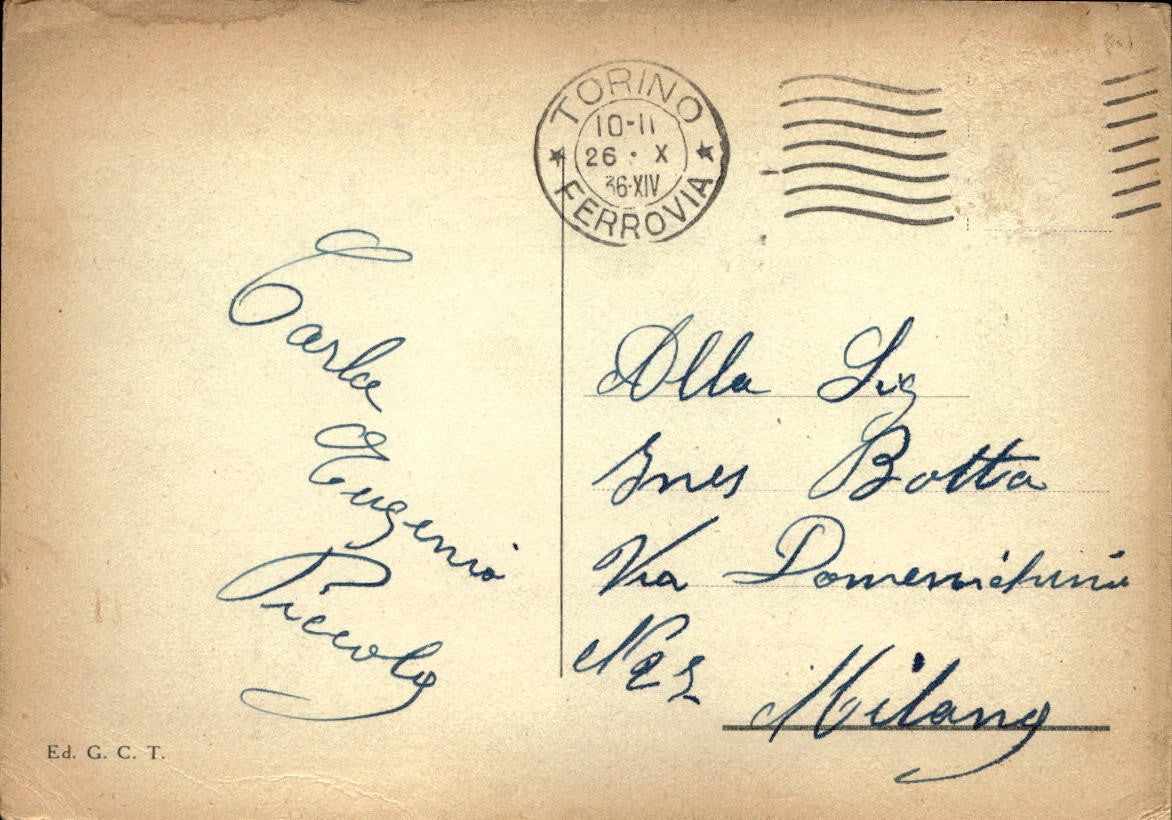 TORINO
10-11
26 · X
36·XIV
FERROVIA
Carla
Eugenio
Piccolo
Alla Sig
Ines Botta
Via Domenichini
N
Milano
Ed. G. C. T.